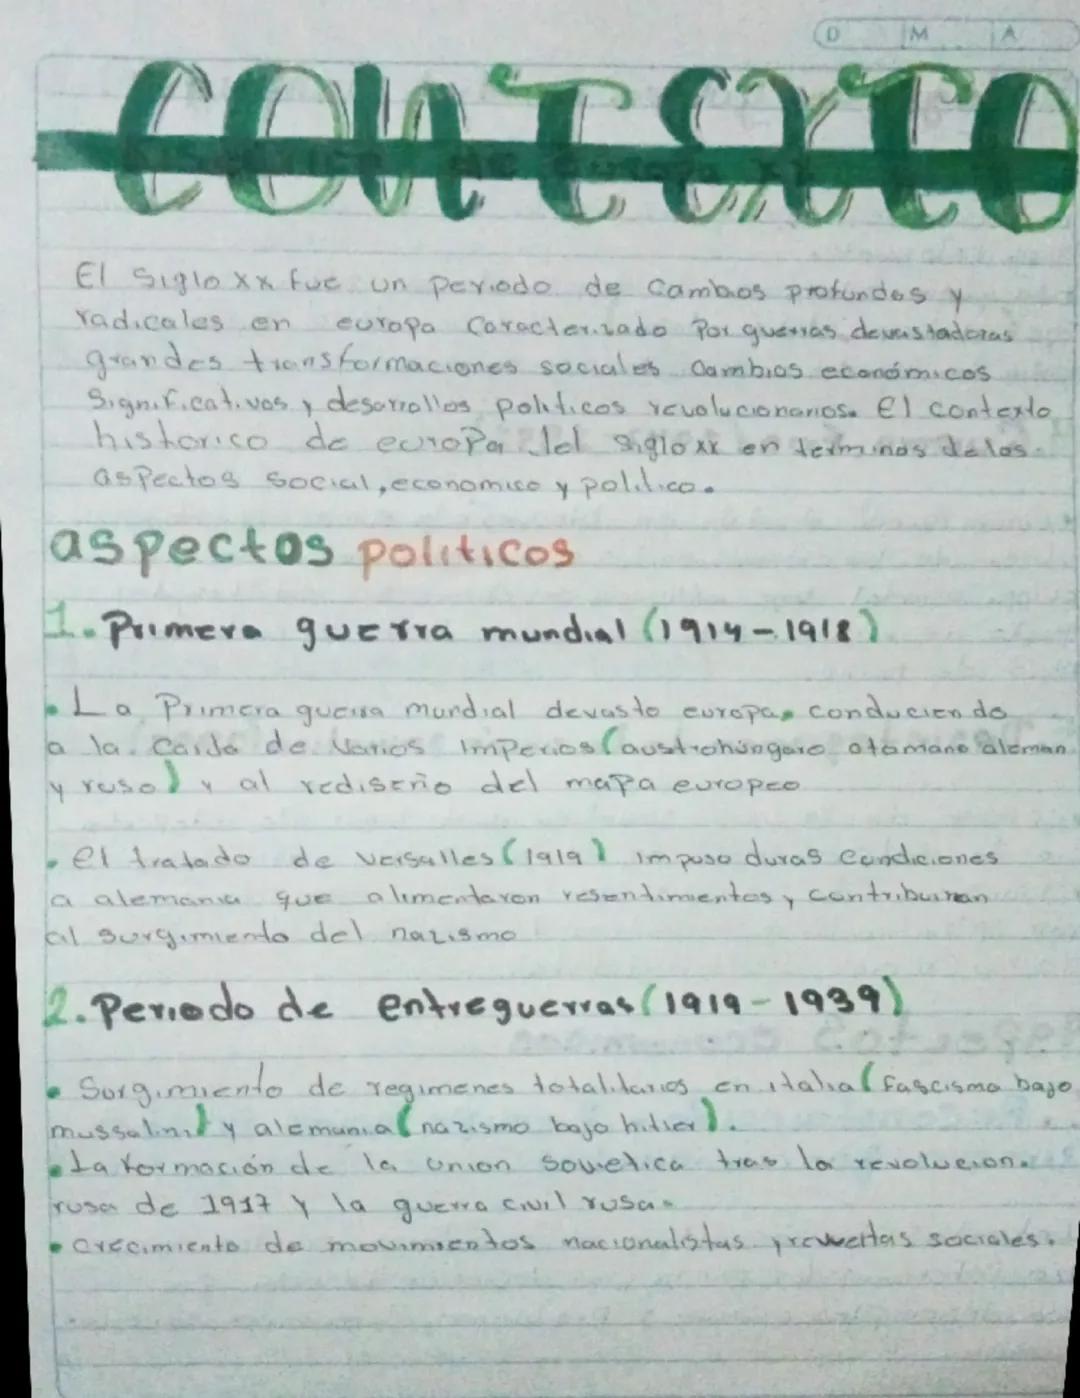 D M A
CONTEXTO
historico de europa XX
El Siglo XX fue un periodo de Cambios profundos y
radicales en europa Caracterizado Por guerras devastadoras
grandes transformaciones sociales Cambios económicos
Significativos y desarrollos politicos revolucionarios. El contexto
historico de europa del siglo XX en terminos de los
asPectos social, economico y politico.
aspectos politicos
1. Primera guerra mundial (1914-1918)
• La Primera guerra mundial devasto europa, conduciendo
a la Caida de Varios Imperios (austrohúngaro otamano aleman
y ruso) y al rediseño del mapa europeo
• el tratado de Versalles (1919) impuso duras condiciones
a alemania que alimentaron resentimientos y contribuiran
al surgimiento del nazismo
2. Periodo de entreguerras (1919-1939)
• Surgimiento de regimenes totalitarios en italia (fascismo bajo
mussolini) y alemania (nazismo bajo hitler).
• La formación de la union sovietica tras la revolucion.
rusa de 1917 y la guerra civil rusa.
• crecimiento de movimientos nacionalistas y revueltas sociales.